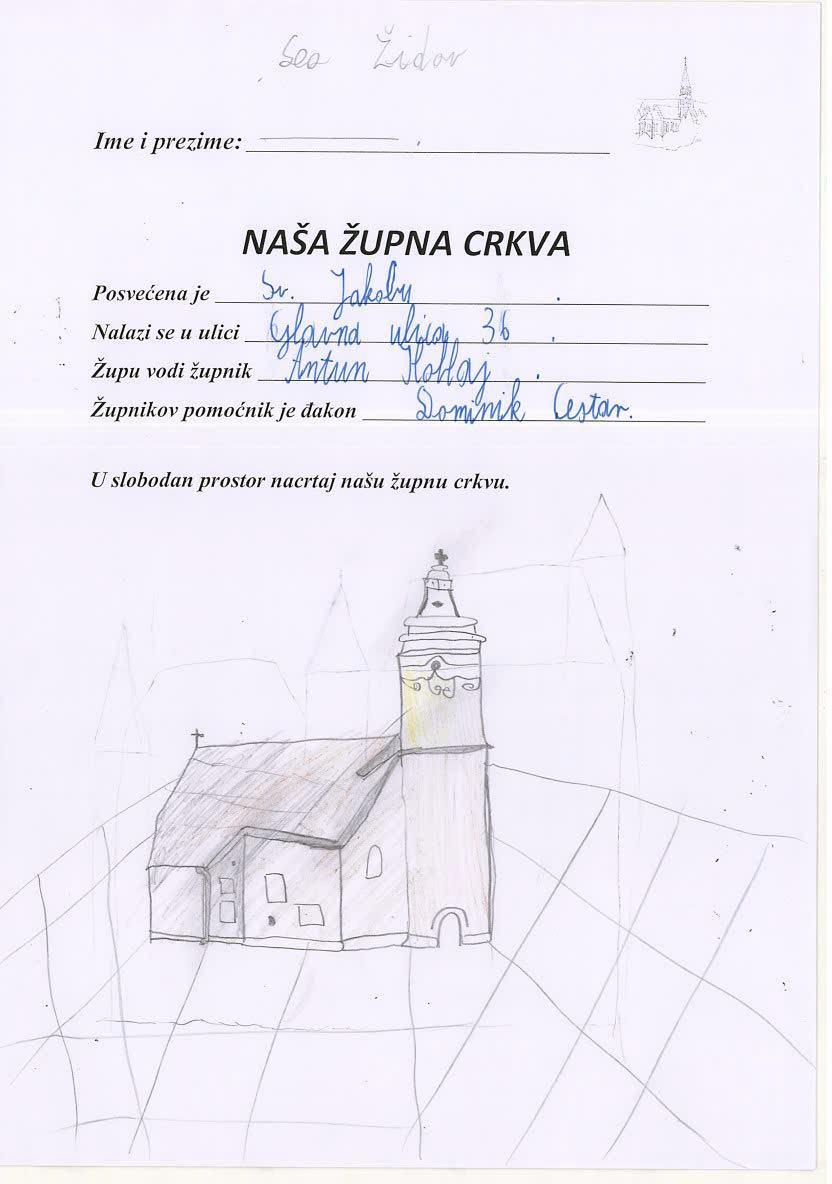 Leo Židov
Ime i prezime:
NAŠA ŽUPNA CRKVA
Posvećena je Sv. Jakobu.
Nalazi se u ulici Glavna ulica 36.
Župu vodi župnik Antun Hoblaj.
Župnikov pomoćnik je đakon Dominik Cestar.
U slobodan prostor nacrtaj našu župnu crkvu.